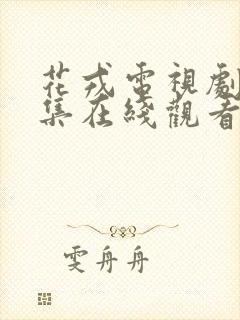 花戎電視劇
集在綫觀看
雯舟舟